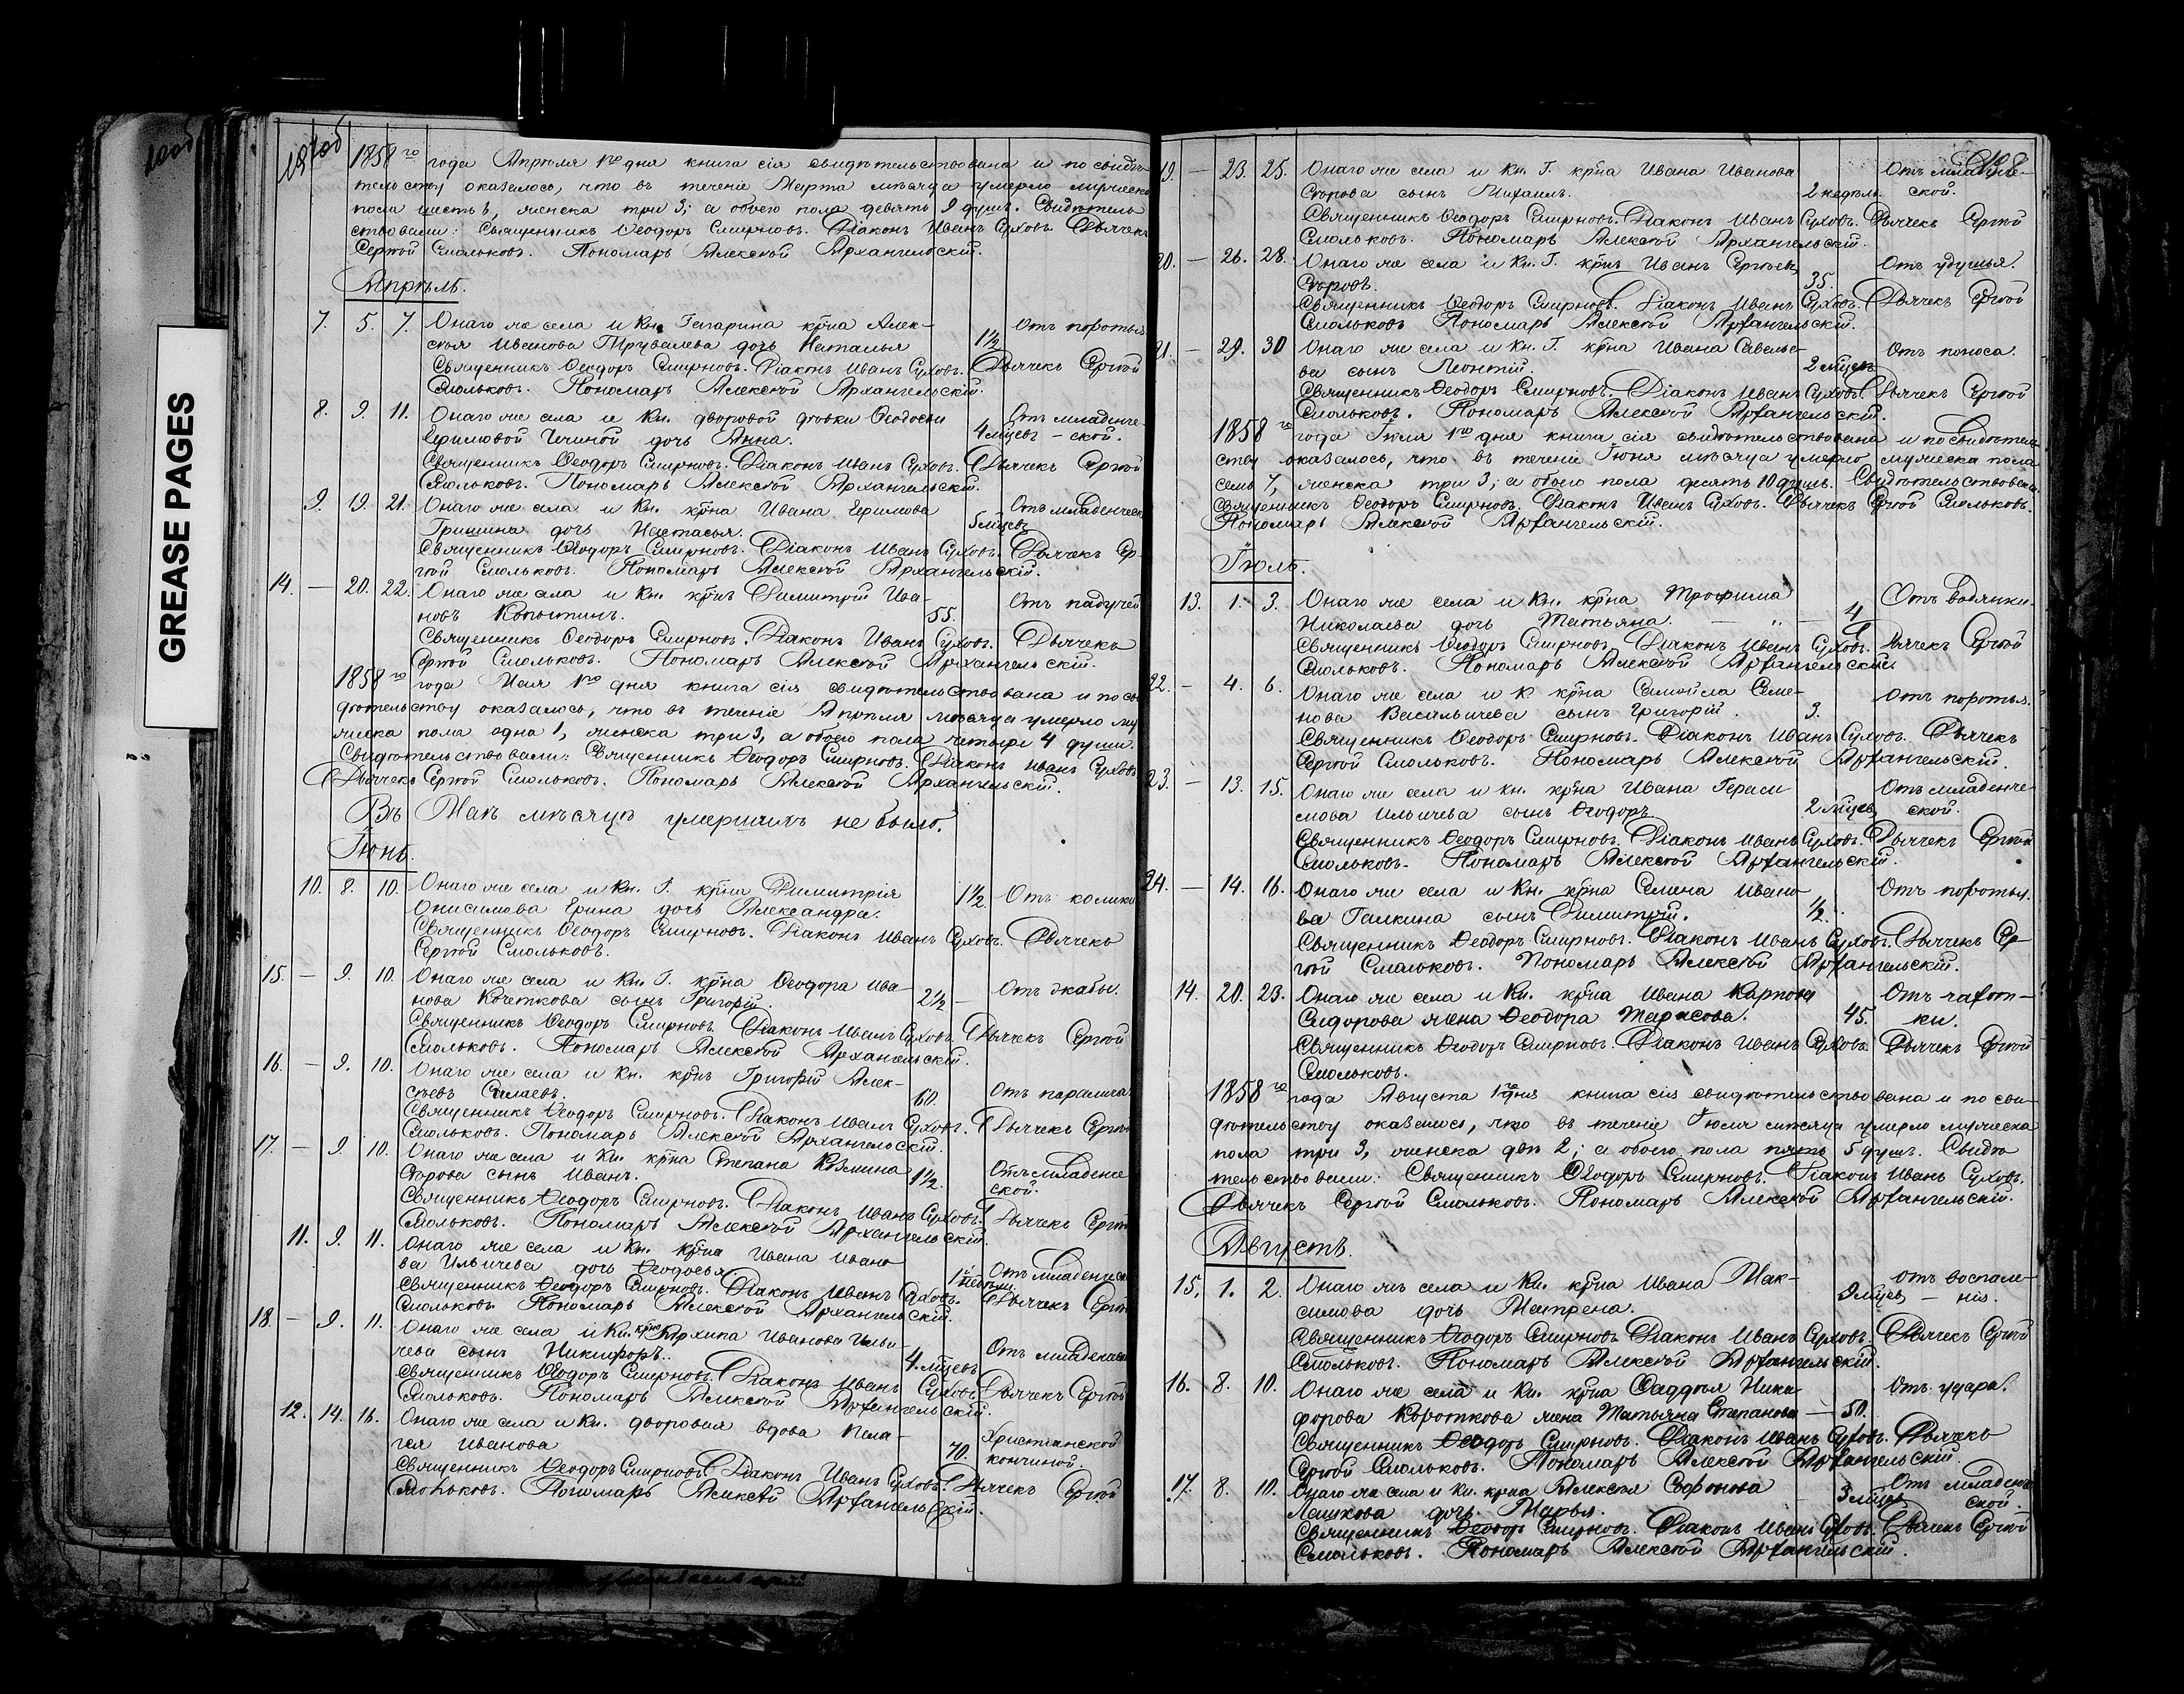 GREASE PAGES
1858 го года Апрѣля 1го дня книга сія свидѣтельствована и по свидѣ-
тельству оказалось, что въ теченіе Марта мѣсяца умерло мужеска
пола шесть, женска три 3; а обоего пола девять 9 душъ. Свидѣтель
ствовали: Священникъ Ѳеодоръ Смирновъ. Діаконъ Иванъ Суховъ. Дьячекъ
Сергѣй Смольковъ. Пономарь Алексѣй Архангельскій.
Апрѣль.
7. 5. 7. Онаго же села и Кн. Гагарина крна Алек- Отъ поротья
сѣя Иванова Трувалева дочь Наталья 1½
Священникъ Ѳеодоръ Смирновъ. Діаконъ Иванъ Суховъ. Дьячекъ Сергѣй
Смольковъ. Пономарь Алексѣй Архангельскій.
8. 9. 11. Онаго же села и Кн. дворовой дѣвки Ѳедосьи Отъ младенче-
Ефимовой дочь Анна. 4 мѣцевъ - ской.
Священникъ Ѳеодоръ Смирновъ. Діаконъ Иванъ Суховъ. Дьячекъ Сергѣй
Смольковъ. Пономарь Алексѣй Архангельскій.
9. 19. 21. Онаго же села и Кн. крна Ивана Ефимова Отъ младенческ
Гришина дочь Настасья. 5 мѣцевъ
Священникъ Ѳеодоръ Смирновъ. Діаконъ Иванъ Суховъ. Дьячекъ Сер-
гѣй Смольковъ. Пономарь Алексѣй Архангельскій.
14. — 20. 22. Онаго же села и Кн. крнъ Димитрій Ива- Отъ падучей
новъ Копытинъ. 55.
Священникъ Ѳеодоръ Смирновъ. Діаконъ Иванъ Суховъ. Дьячекъ
Сергѣй Смольковъ. Пономарь Алексѣй Архангельскій.
1858 го года Мая 1го дня книга сія свидѣтельствована и по сви
дѣтельству оказалось, что въ теченіе Апрѣля мѣсяца умерло му
жеска пола одна 1, женска три 3, а обоего пола четыре 4 души.
Свидѣтельствовали: Священникъ Ѳеодоръ Смирновъ. Діаконъ Иванъ Суховъ
Дьячекъ Сергѣй Смольковъ. Пономарь Алексѣй Архангельскій.
Въ Маѣ мѣсяцѣ умершихъ не было.
Іюнь.
10. 8. 10. Онаго же села и Кн. Г. крна Димитрія 1½. Отъ колики
Онисимова Ерина дочь Александра.
Священникъ Ѳеодоръ Смирновъ. Діаконъ Иванъ Суховъ. Дьячекъ
Сергѣй Смольковъ.
15. — 9. 10. Онаго же села и Кн. Г. крна Ѳеодора Ива- Отъ жабы.
нова Кочеткова сынъ Григорій. 2½ —
Священникъ Ѳеодоръ Смирновъ. Діаконъ Иванъ Суховъ. Дьячекъ Сергѣй
Смольковъ. Пономарь Алексѣй Архангельскій.
16. — 9. 10. Онаго же села и Кн. крнъ Григорій Алек- Отъ паралича
сѣевъ Силаевъ. 60.
Священникъ Ѳеодоръ Смирновъ. Діаконъ Иванъ Суховъ. Дьячекъ Сергѣй
Смольковъ. Пономарь Алексѣй Архангельскій.
17. — 9. 10. Онаго же села и Кн. крна Степана Козмина Отъ младенче
сынъ Иванъ. 1½. ской.
Священникъ Ѳеодоръ Смирновъ. Діаконъ Иванъ Суховъ. Дьячекъ Сергѣй
Смольковъ. Пономарь Алексѣй Архангельскій.
11. 9. 11. Онаго же села и Кн. крна Ивана Ивано
ва Ильичева дочь Ѳеодосья Отъ младенческ
Священникъ Ѳеодоръ Смирновъ. Діаконъ Иванъ Суховъ. Дьячекъ Сергѣй
Смольковъ. Пономарь Алексѣй Архангельскій.
18. — 9. 11. Онаго же села и Кн. крна Архипа Иванова Ильи-
чева сынъ Никифоръ. 4. мѣцевъ Отъ младенческ
Священникъ Ѳеодоръ Смирновъ. Діаконъ Иванъ Суховъ. Дьячекъ Сергѣй
Смольковъ. Пономарь Алексѣй Архангельскій.
12. 14. 16. Онаго же села и Кн. дворовая вдова Пела- Христіанской
гея Иванова 70. кончиной.
Священникъ Ѳеодоръ Смирновъ. Діаконъ Иванъ Суховъ. Дьячекъ Сергѣй
Смольковъ. Пономарь Алексѣй Архангельскій.
19. — 23. 25. Онаго же села и Кн. Г. крна Ивана Иванова Отъ младенче-
сынъ Михаилъ. 2 недѣли ской.
Священникъ Ѳеодоръ Смирновъ. Діаконъ Иванъ Суховъ. Дьячекъ Сергѣй
Смольковъ. Пономарь Алексѣй Архангельскій.
20. — 26. 28. Онаго же села и Кн. Г. крнъ Иванъ Сергѣевъ Отъ удушья.
35.
Священникъ Ѳеодоръ Смирновъ. Діаконъ Иванъ Суховъ. Дьячекъ Сергѣй
Смольковъ. Пономарь Алексѣй Архангельскій.
21. — 29. 30 Онаго же села и Кн. Г. крна Ивана Савелье- Отъ поноса.
ва сынъ Леонтій. 2 мѣцевъ
Священникъ Ѳеодоръ Смирновъ. Діаконъ Иванъ Суховъ. Дьячекъ Сергѣй
Смольковъ. Пономарь Алексѣй Архангельскій.
1858 го года Іюля 1го дня книга сія свидѣтельствована и по свидѣтель
ству оказалось, что въ теченіе Іюня мѣсяца умерло мужеска пола
семь 7, женска три 3; а обоего пола десять 10 душъ. Свидѣтельствовали
Священникъ Ѳеодоръ Смирновъ. Діаконъ Иванъ Суховъ. Дьячекъ Сергѣй Смольковъ.
Пономарь Алексѣй Архангельскій.
Іюль.
13. 1. 3. Онаго же села и Кн. крна Трофима 4 Отъ водянки.
Николаева дочь Татьяна.
Священникъ Ѳеодоръ Смирновъ. Діаконъ Иванъ Суховъ. Дьячекъ Сергѣй
Смольковъ. Пономарь Алексѣй Архангельскій.
22. — 4. 6. Онаго же села и К. крна Самойла Семе- Отъ поротья.
нова Васильичева сынъ Григорій. 3.
Священникъ Ѳеодоръ Смирновъ. Діаконъ Иванъ Суховъ. Дьячекъ
Сергѣй Смольковъ. Пономарь Алексѣй Архангельскій.
23. — 13. 15. Онаго же села и Кн. крна Ивана Гераси Отъ младенче
мова Ильичева сынъ Ѳеодоръ 2 мѣцевъ ской.
Священникъ Ѳеодоръ Смирновъ. Діаконъ Иванъ Суховъ. Дьячекъ Сергѣй
Смольковъ. Пономарь Алексѣй Архангельскій.
24. — 14. 16. Онаго же села и Кн. крна Ивано Отъ поротья.
ва Галкина сынъ Димитрій. ½.
Священникъ Ѳеодоръ Смирновъ. Діаконъ Иванъ Суховъ. Дьячекъ Сер-
гѣй Смольковъ. Пономарь Алексѣй Архангельскій.
14. 20. 23. Онаго же села и Кн. крна Ивана Карпова Отъ чахот-
Сидорова жена Ѳеодора Тарасова. 45. ки.
Священникъ Ѳеодоръ Смирновъ. Діаконъ Иванъ Суховъ. Дьячекъ Сергѣй
Смольковъ.
1858 го года Августа 1го дня книга сія свидѣтельствована и по сви-
дѣтельству оказалось, что въ теченіе Іюля мѣсяца умерло мужеска
пола три 3, женска двѣ 2; а обоего пола пять 5 душъ. Свидѣ
тельствовали: Священникъ Ѳеодоръ Смирновъ. Діаконъ Иванъ Суховъ.
Дьячекъ Сергѣй Смольковъ. Пономарь Алексѣй Архангельскій.
Августъ.
15. 1. 2. Онаго жъ села и Кн. крна Ивана Мак- отъ воспале-
симова дочь Матрена. 9 мѣцевъ — нія.
Священникъ Ѳеодоръ Смирновъ. Діаконъ Иванъ Суховъ. Дьячекъ Сергѣй
Смольковъ. Пономарь Алексѣй Архангельскій.
16. 8. 10. Онаго же села и Кн. крна Ѳаддѣя Ники Отъ удара.
форова Короткова жена Татьяна Степанова — 50.
Священникъ Ѳеодоръ Смирновъ. Діаконъ Иванъ Суховъ. Дьячекъ
Сергѣй Смольковъ. Пономарь Алексѣй Архангельскій.
17. 8. 10. Онаго же села и Кн. крна Алексѣя Софонова Отъ младенч
Лашкова дочь Марья. 3 мѣцев ской.
Священникъ Ѳеодоръ Смирновъ. Діаконъ Иванъ Суховъ. Дьячекъ Сергѣй
Смольковъ. Пономарь Алексѣй Архангельскій.